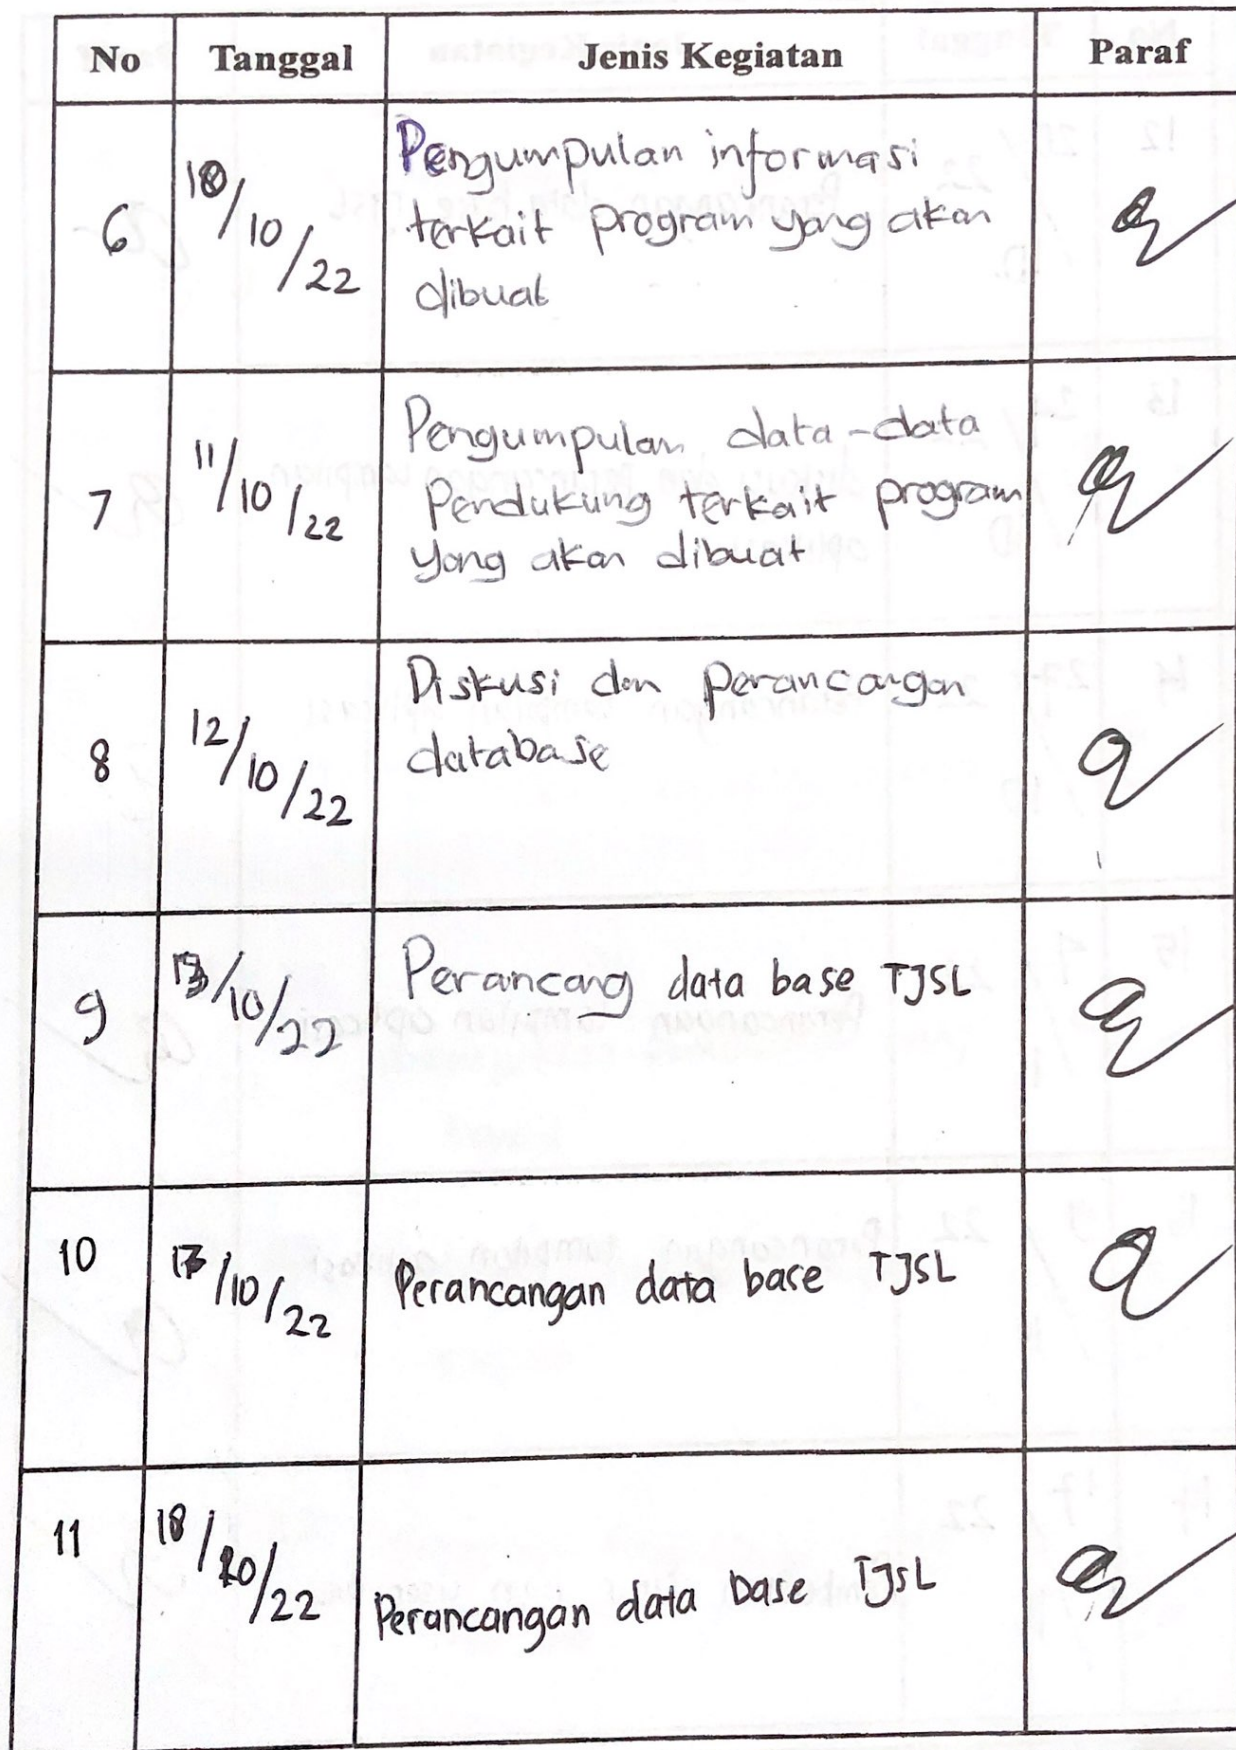 No Tanggal Jenis Kegiatan Paraf
6 10/10/22 Pengumpulan informasi
terkait program yang akan
dibuat
7 11/10/22 Pengumpulan data-data
Pendukung terkait program
yang akan dibuat
8 12/10/22 Diskusi dan perancangan
database
9 13/10/22 Perancang data base TJSL
10 17/10/22 Perancangan data base TJSL
11 18/10/22 Perancangan data base TJSL